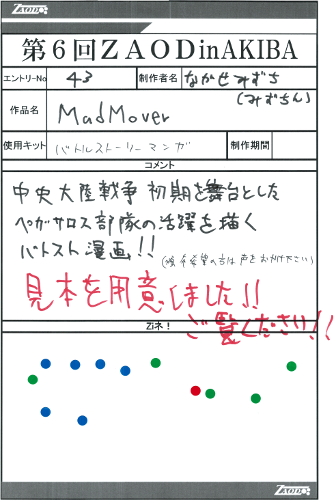 ZAOD
第6回ZAODinAKIBA
エントリーNo 43 製作者名 ながせみずち
(みずちん)
作品名 MadMover
使用キット バトルストーリーマンガ 製作期間
コメント
中央大陸戦争 初期を舞台とした
ペガサロス部隊の活躍を描く
バトスト漫画!!
見本を用意しました!!
ご覧ください!!
Ziネ!
ZAOD